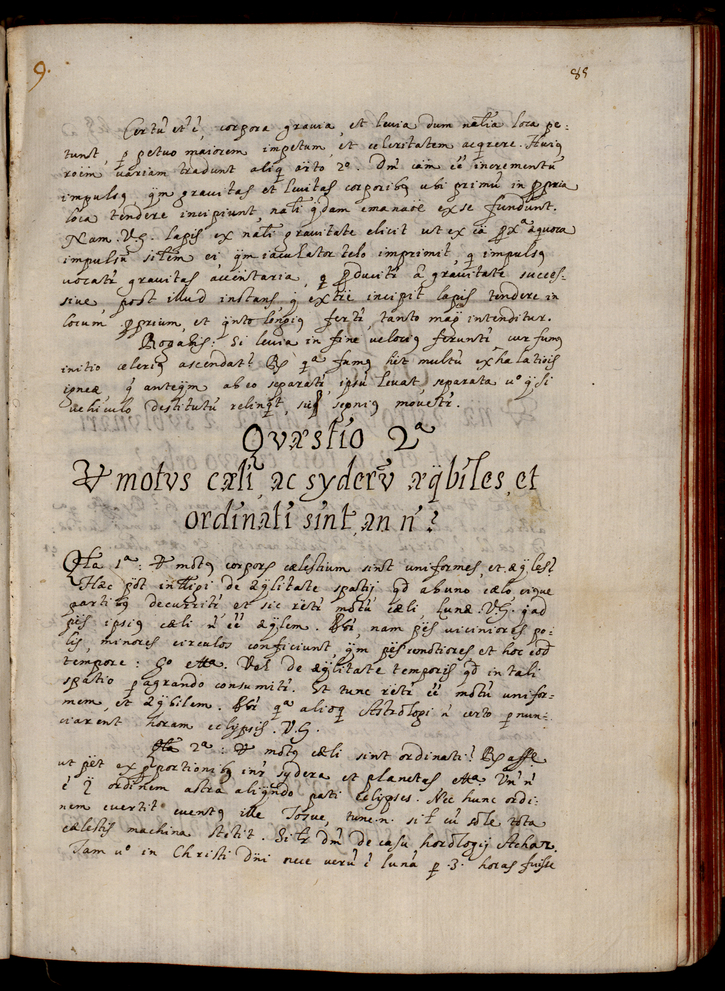 9.
85
Certũ est ẽ, corpora gravia, et levia dum nãlia loca pe:
tunt, ꝑpetuo maiorem impetum, et celeritatem acq̃rere. Huiꝰ
roẽm variam tradunt aliq̃ 2º. Dm̃ cãm ẽẽ incrementũ
impulsꝰ q̃m gravitas et levitas corporibꝰ ubi primũ in ꝓpria
loca tendere incipiunt, nãli q̃dam emanaõe ex se fundunt.
Nam. V.G. lapis ex nãli gravitate elicit
impulsũ silẽm ei q̃m iaculator telo imprimit, q̃ impulsꝰ
vocatr̃ gravitas accentaria, q̃ ꝓducitr̃ â gravitate succes-
sive, post illud instans q̃ extrẽ incipit lapis tendere in
locum ꝓprium, et q̃nto longiꝰ fertr̃ tanto maĝ intenditur.
Rogabis: Si levia in fine velociꝰ feruntr̃, cur fumꝰ
initio celeriꝰ ascendat? Rs̃ qª fumꝰ multũ exhalatiõis
igneæ q̃ anteq̃m ab eo separatr̃, ipsũ levat separata vº q̃si
vehiculo destitutũ relinq̃t, sicq̃ segniꝰ movetr̃.
Qvæstio 2ª
Vt motvs cæli, ac syderũ æq̃biles, et
ordinati sint, an ñ?
Qta 1ª: Vt motꝰ corporũ cælestium sint uniformes, et æq̃les?
Hæc põt intlligi de æq̃litate spatij q̃d ab uno cælo, eiꝰque
partibꝰ decurritr̃ et sic rẽsti motũ cæli, lunæ. V.G. q̃ad
p̃tes ipsiꝰ cæli ñ ẽẽ æq̃lem. Pbr̃, nam p̃tes viciniores po-
lis, minores circulos conficiunt, q̃m p̃tes remotiores et hoc eõd
tempore: Go etta. Vel de æq̃litate temporis q̃d in tali
spatio ꝑagrando consumitr̃. Et tunc rẽsti ẽẽ motũ unifor-
mem, et æq̃bilem. Pbr̃ qª alioq̃ Astrõlogi ñ certo ꝓnun-
ciarent horam eclypsis. V.G.
Qta 2ª: Vt motꝰ cæli sint ordinati? Rs̃ affe
ut p̃tet ex ꝓportionibꝰ intr̃ sydera, et planetas etta. Vñ ñ
ẽ q̃ ordinem astra aliq̃ndo pati Eclypses. Nec hunc ordi-
nem evertit eventꝰ ille Josue, tunc .n. sil̃ cũ sole tota
cælestis machina stetit. Silr̃ dm̃ de casu horõlogij Achaz.
Jam vº in Christi dñi nece verũ ẽ lunã ꝑ .3. horas fuisse